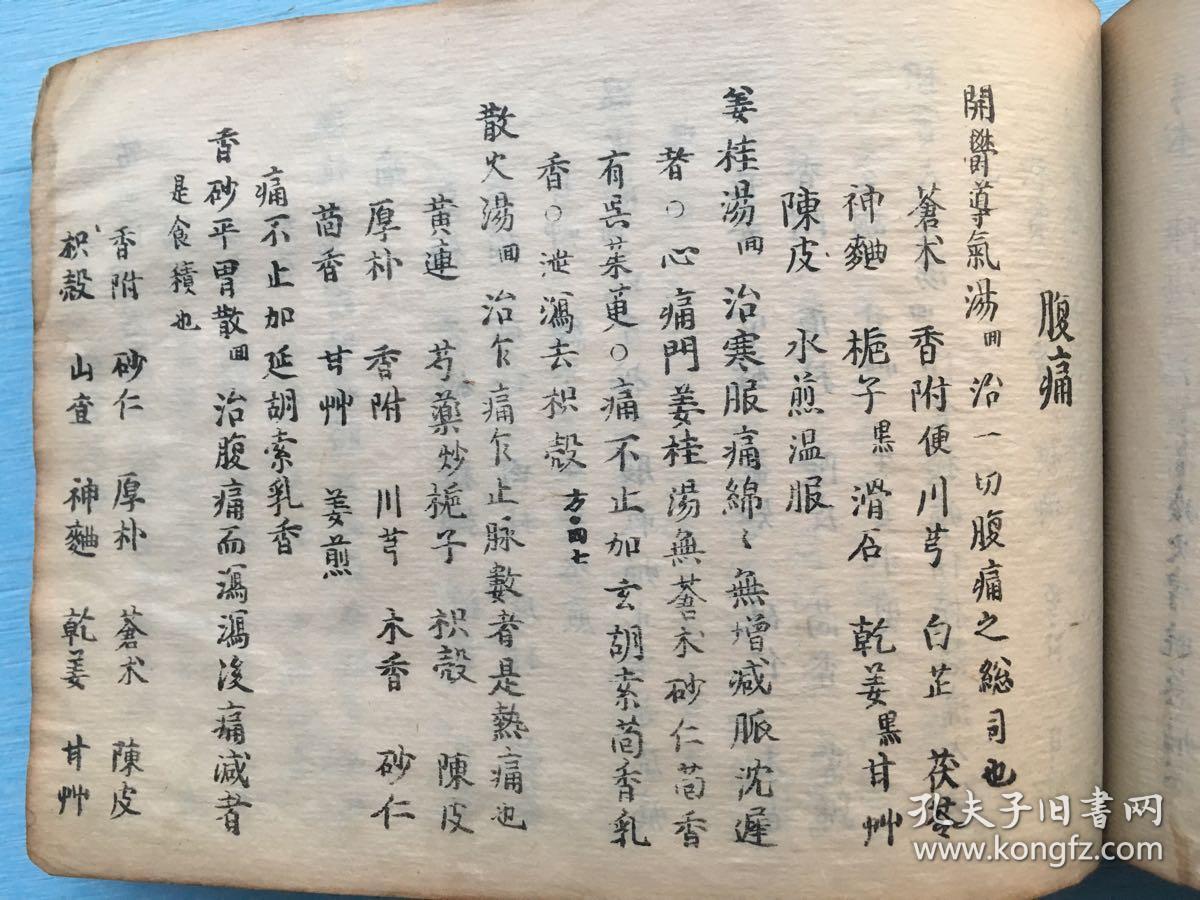 腹痛
開鬱導氣湯囬 治一切腹痛之総司也
蒼朮 香附便 川芎 白芷 茯苓
神麯 梔子黒 滑石 乾姜黒 甘艸
陳皮 水煎温服
姜桂湯囬 治寒服痛綿〻無增减脈沈遲
者○心痛門姜桂湯無蒼朮砂仁茴香
有呉茱萸○痛不止加玄胡索茴香乳
香○泄瀉去枳殼 方·四七
散火湯囬 治乍痛乍止脉數者是熱痛也
黄連 芍藥炒 梔子 枳殼 陳皮
厚朴 香附 川芎 木香 砂仁
茴香 甘艸 姜煎
痛不止加延胡索乳香
香砂平胃散囬 治腹痛而瀉瀉後痛减者
是食積也
香附 砂仁 厚朴 蒼朮 陳皮
枳殼 山查 神麯 乾姜 甘艸
孔夫子旧书网
www.kongfz.com